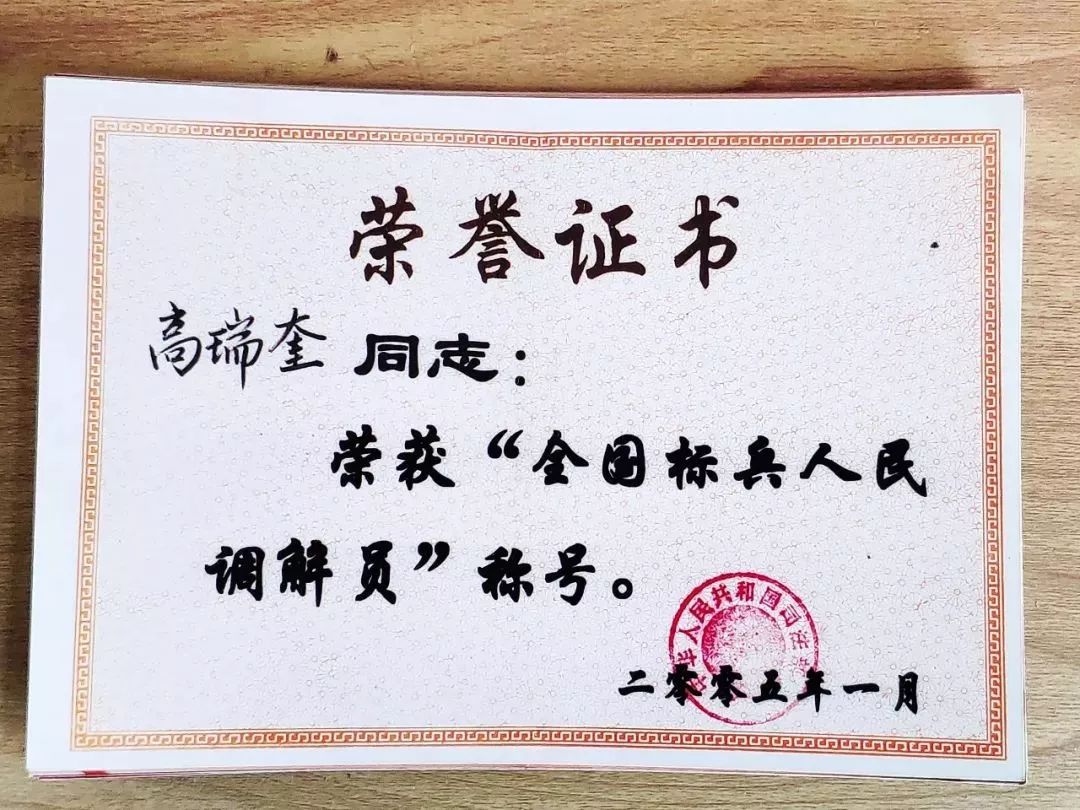 荣誉证书
高瑞奎 同志：
荣获“全国标兵人民
调解员”称号。
中华人民共和国司法部
二零零五年一月